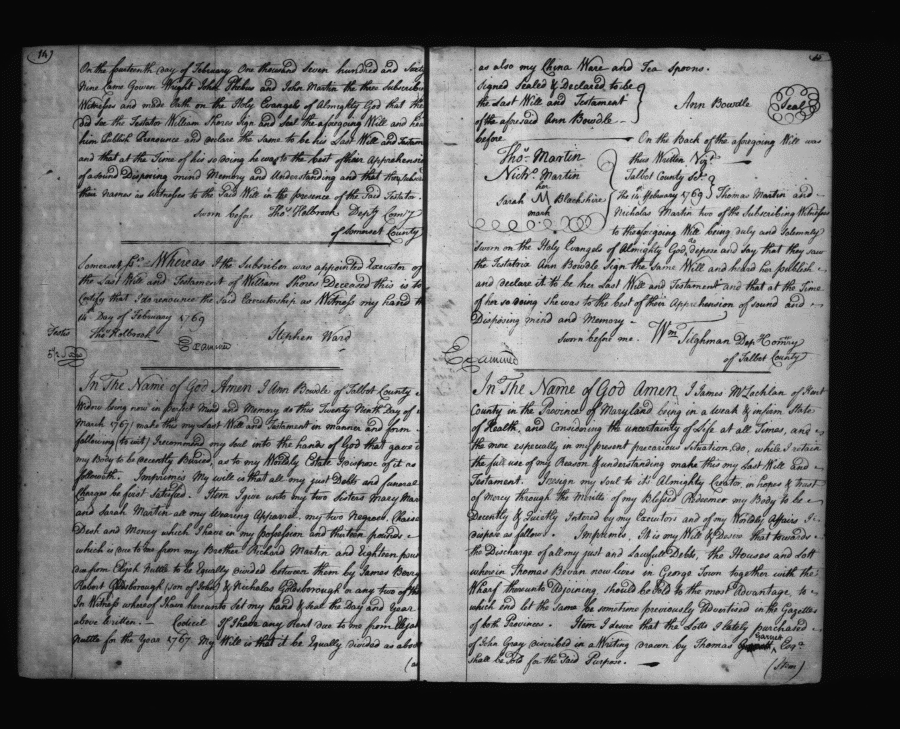 14
On the fourteenth day of February One thousand Seven hundred and Sixty
Nine Came Gowen Wright John Phebus and John Martin the three Subscribing
Witnesses and made Oath on the Holy Evangels of Almighty God that they
did See the Testator William Shores Sign and Seal the aforegoing Will and hea
him Publish Pronounce and declare the Same to be his Last Will and Testam
and that at the Time of his so doing he was to the best of their Apprehension
of a sound Disposing mind Memory and Understanding and that they Subscr
their names as Witnesses to the Said Will in the presence of the Said Testator.
Sworn before Thos. Holbrook Depty Comry
of Somerset County
Somerset Sct. Whereas I the Subscriber was appointed Executor of
the Last Will and Testament of William Shores Deceased this is to
Certify that I do renounce the Said Executorship as Witness my hand th
14th Day of February 1769
Testes Thos. Holbrook
Stephen Ward
Examined
In The Name of God Amen I Ann Bowdle of Talbot County
Widow being now in perfect Mind and Memory do this Twenty Ninth Day of
March 1767) make this my Last Will and Testament in manner and form
following (to wit) I recommend my Soul into the hands of God that gave i
my Body to be decently Buried, as to my Worldly Estate I dispose of it as
followeth. Imprimis My will is that all my just Debts and funeral
Charges be first Satisfied. Item I give unto my two Sisters Mary Mar
and Sarah Martin all my Wearing Apparrel my two Negroes, Chaise
Desk and Money which I have in my possession and thirteen pounds
which is due to me from my Brother Richard Martin and Eighteen poun
due from Elijah Nuttle to be Equally divided between them by James Berry
Robert Goldsborough (son of John) & Nicholas Goldsborough or any two of the
In Witness whereof I have hereunto Set my hand & Seal the Day and Year
above Written. — Codicil If I have any Rent due to me from Elijah
Nuttle for the Year 1767 My Will is that it be Equally divided as abov
(as
as also my China Ware and Tea Spoons.
Signed Sealed & Declared to be
the Last Will and Testament
of the aforesaid Ann Bowdle
before
Ann Bowdle
Seal
Thos. Martin
Nichs. Martin
her
Sarah M Blackshire
mark
On the Back of the aforegoing Will was
thus Written Vizt.
Talbot County Sct.
The February 1769 Thomas Martin and
Nicholas Martin two of the Subscribing Witnesses
to the aforegoing Will being duly and Solemnly
Sworn on the Holy Evangels of Almighty God depose and Say that they Saw
the Testatrix Ann Bowdle Sign the Same Will and heard her publish
and declare it to be her Last Will and Testament and that at the Time
of her so doing She was to the best of their Apprehension of Sound and
Disposing mind and Memory
Sworn before me. Wm Tilghman Depy Comry
of Talbot County
Examined
In The Name of God Amen I James McLachlan of Kent
County in the Province of Maryland being in a Weak & infirm State
of Health, and Considering the uncertainty of Life at all Times, and
the more especially in my present precarious Situation, do, while I retain
the full use of my Reason & understanding make this my Last Will and
Testament. I resign my Soul to it's Almighty Creator in hopes & trust
of Mercy through the Merrits of my Blessed Redeemer my Body to be
Decently & Quietly Interred by my Executors and of my Worldly Affairs I
dispose as follows. Imprimis. It is my Will & Desire that towards
the Discharge of all my just and Lawfull Debts, the Houses and Lott
wherein Thomas Bevan now lives in George Town together with the
Wharf thereunto Adjoining should be Sold to the most Advantage, to
which end let the Same be Sometime previously Advertised in the Gazettes
of both Provinces. Item I desire that the Lotts I lately purchased
of John Gray discribed in a Writing drawn by Thomas Garnet Esqr.
Shall be Sold for the Said Purpose.
(Item)